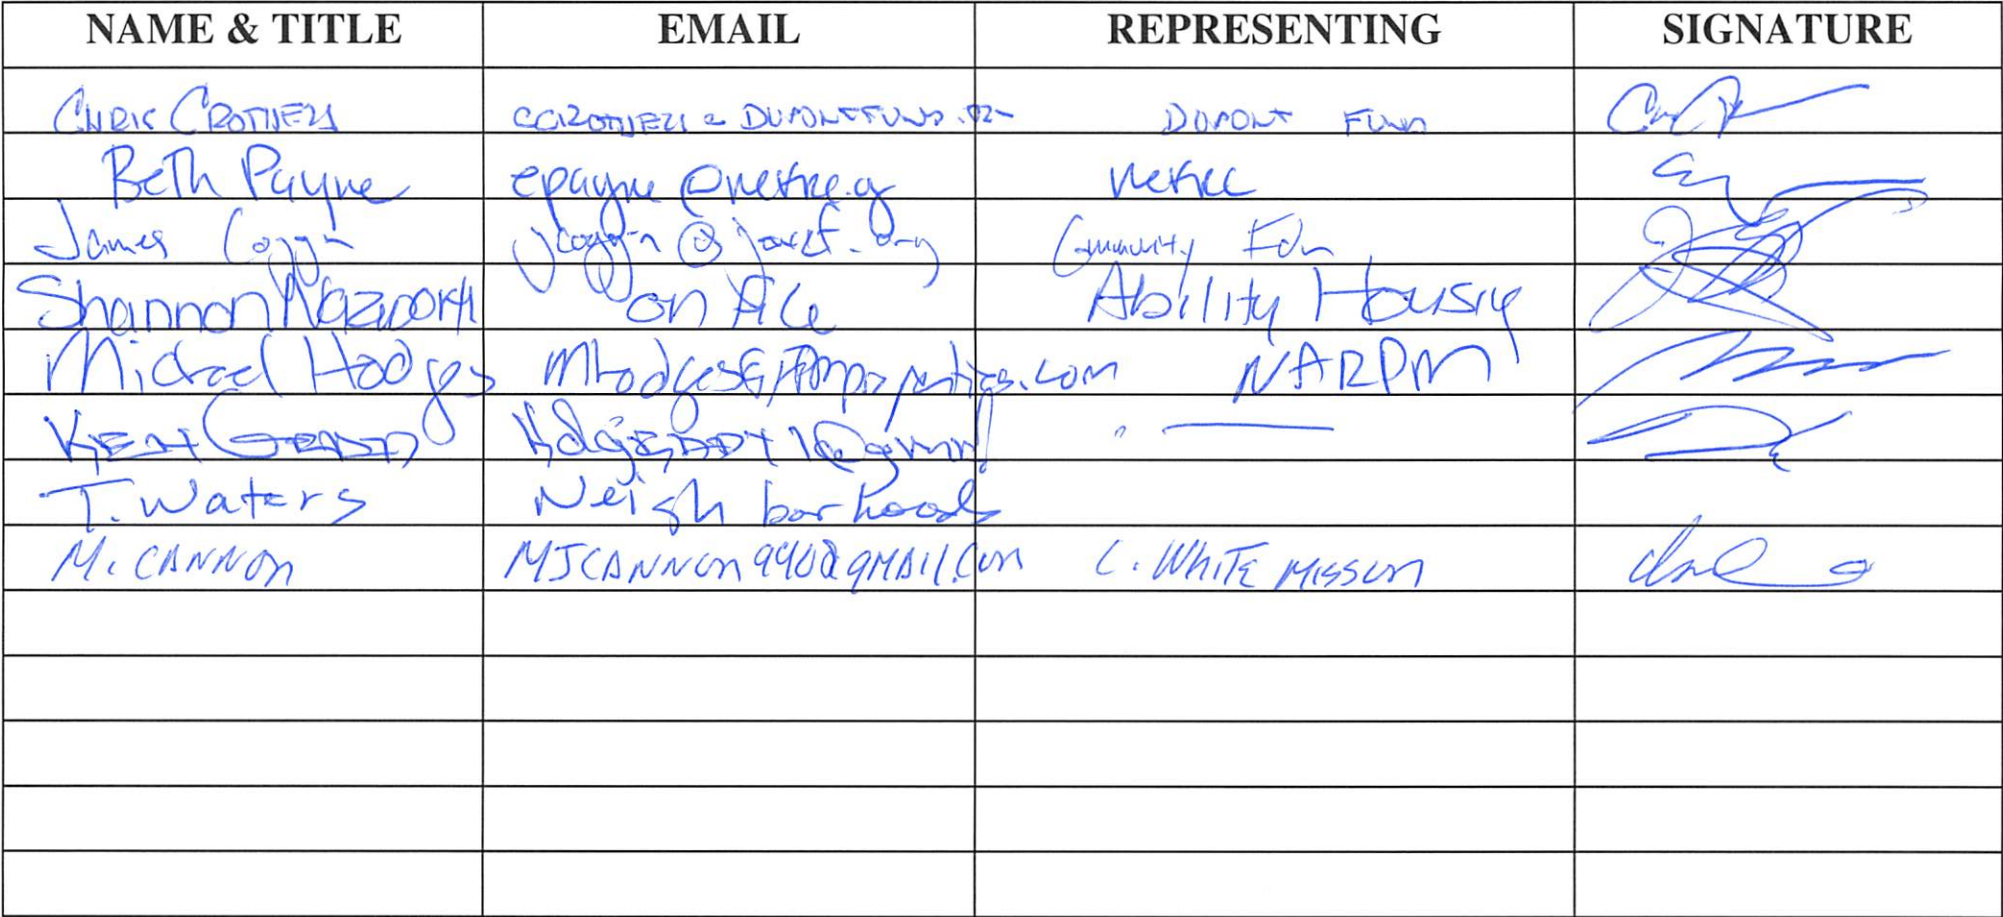 NAME & TITLE EMAIL REPRESENTING SIGNATURE
CHRIS CROTHERS CCROTHERS@DUPONTFUND.ORG DUPONT FUND
Beth Payne epayne@nefrc.org nefrc
James Coggin jcoggin@jaxcf.org Community Fdn
Shannon Nazworth on file Ability Housing
Michael Hodges NARPM
T. Waters Neighborhoods
M. CANNON MJCANNON940@GMAIL.COM C. WHITE MISSION